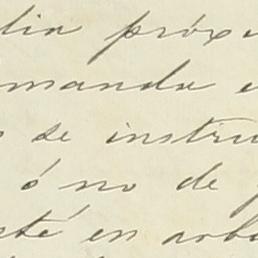 dia próxi
manda e
se instru
ó no de
sté en arbo